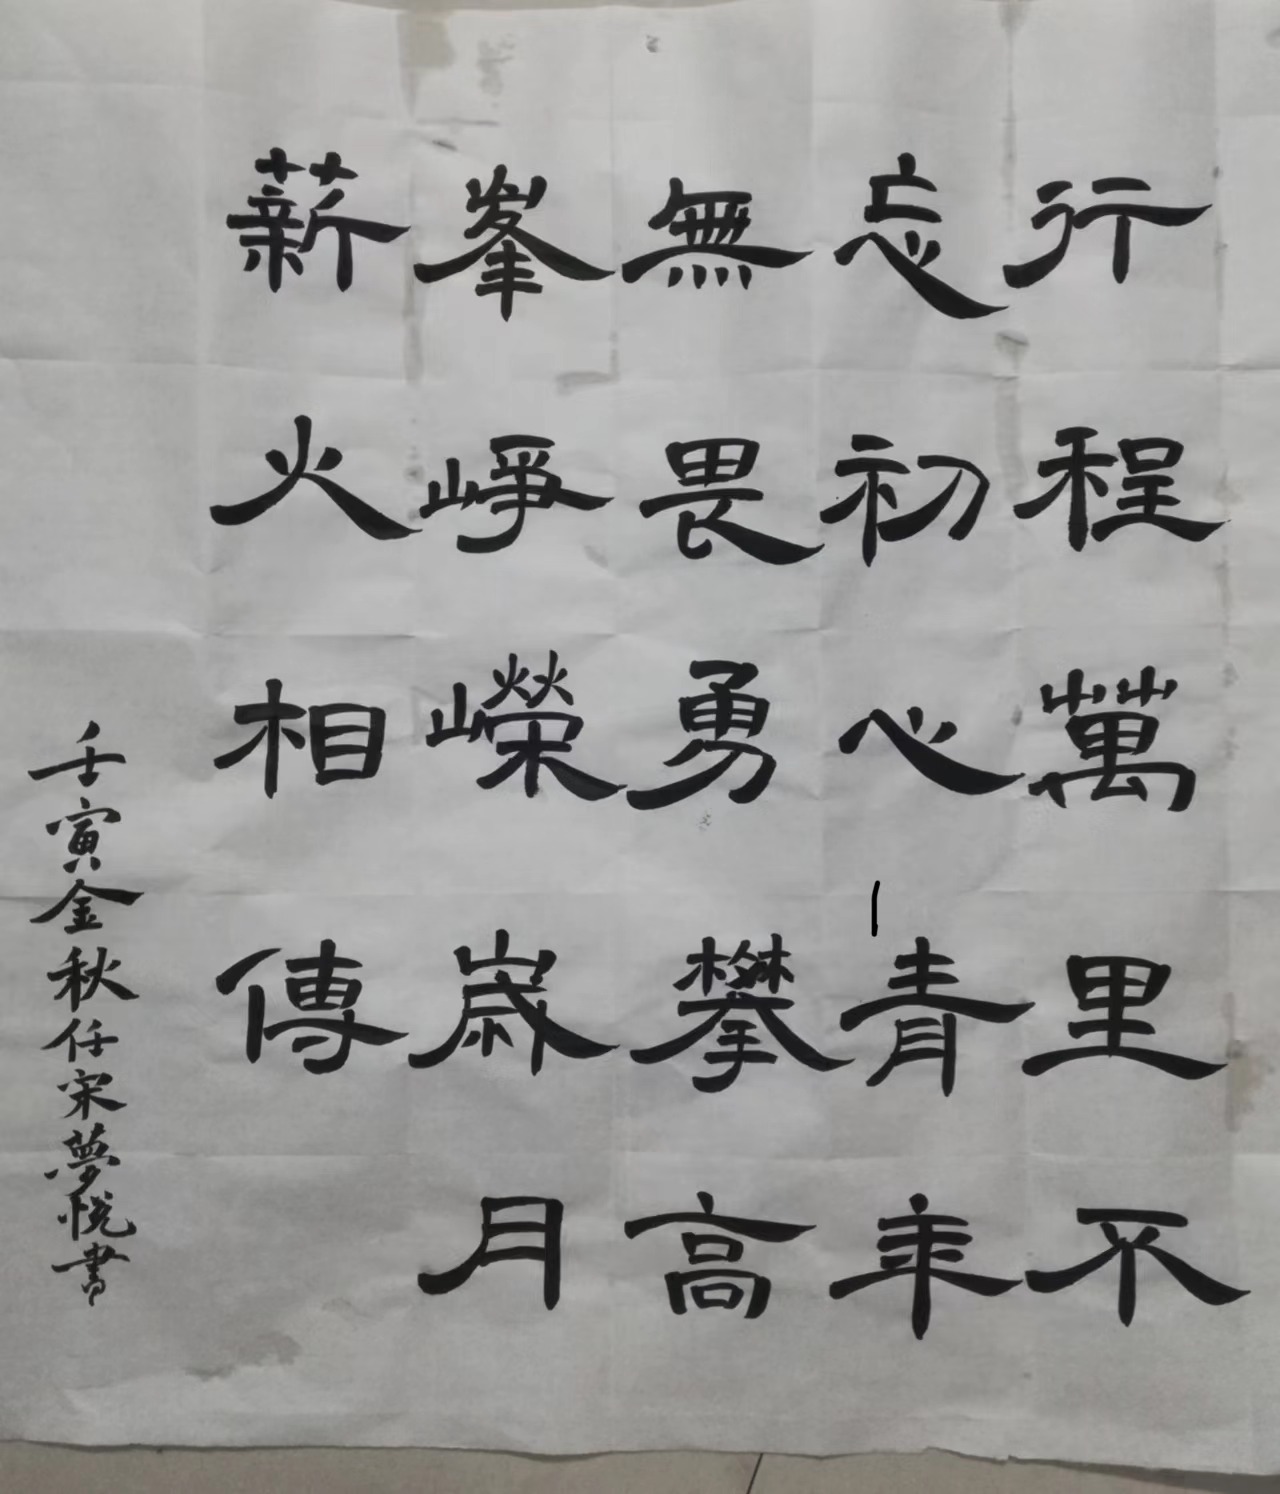 行程萬里不
忘初心青年
無畏勇攀高
峯崢嶸歲月
薪火相傳
壬寅金秋任宋夢悦書